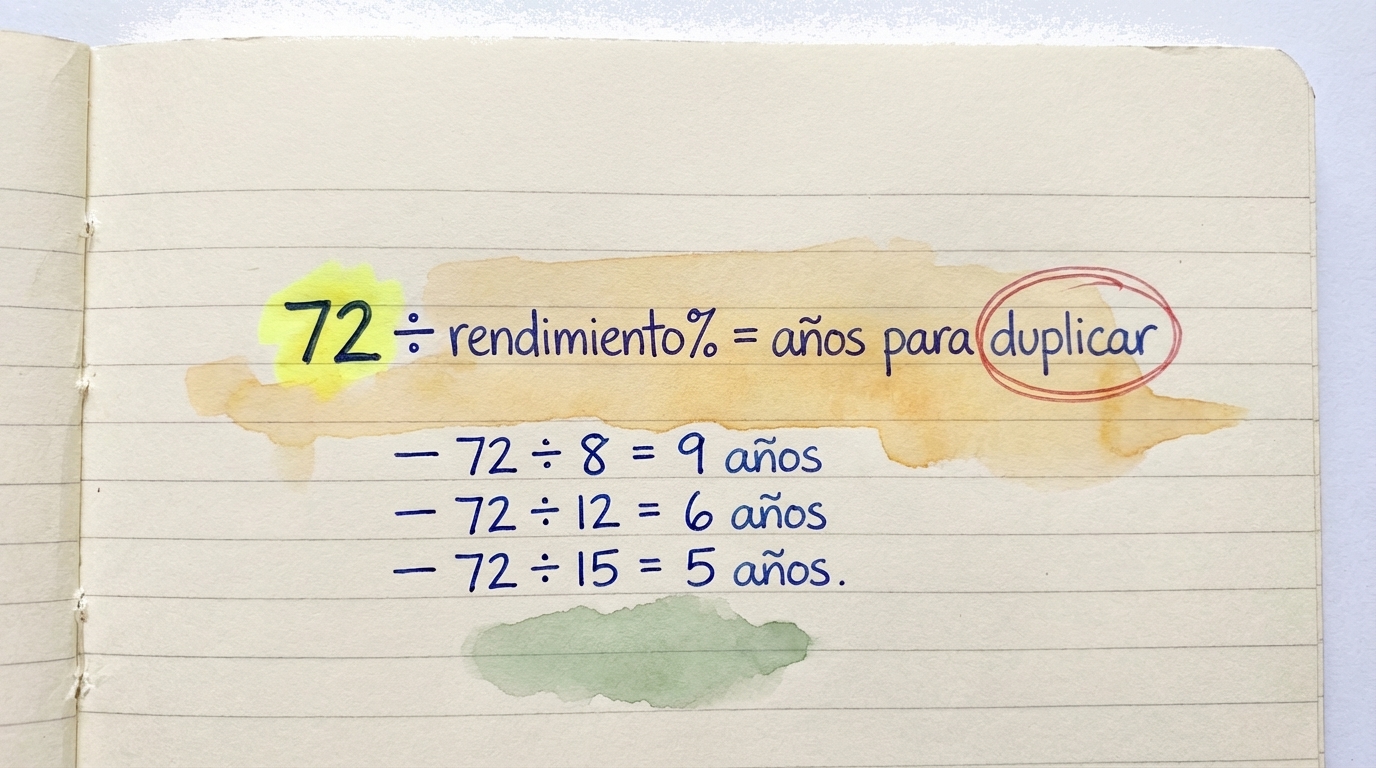 72 ÷ rendimiento% = años para duplicar
— 72 ÷ 8 = 9 años
— 72 ÷ 12 = 6 años
— 72 ÷ 15 = 5 años.